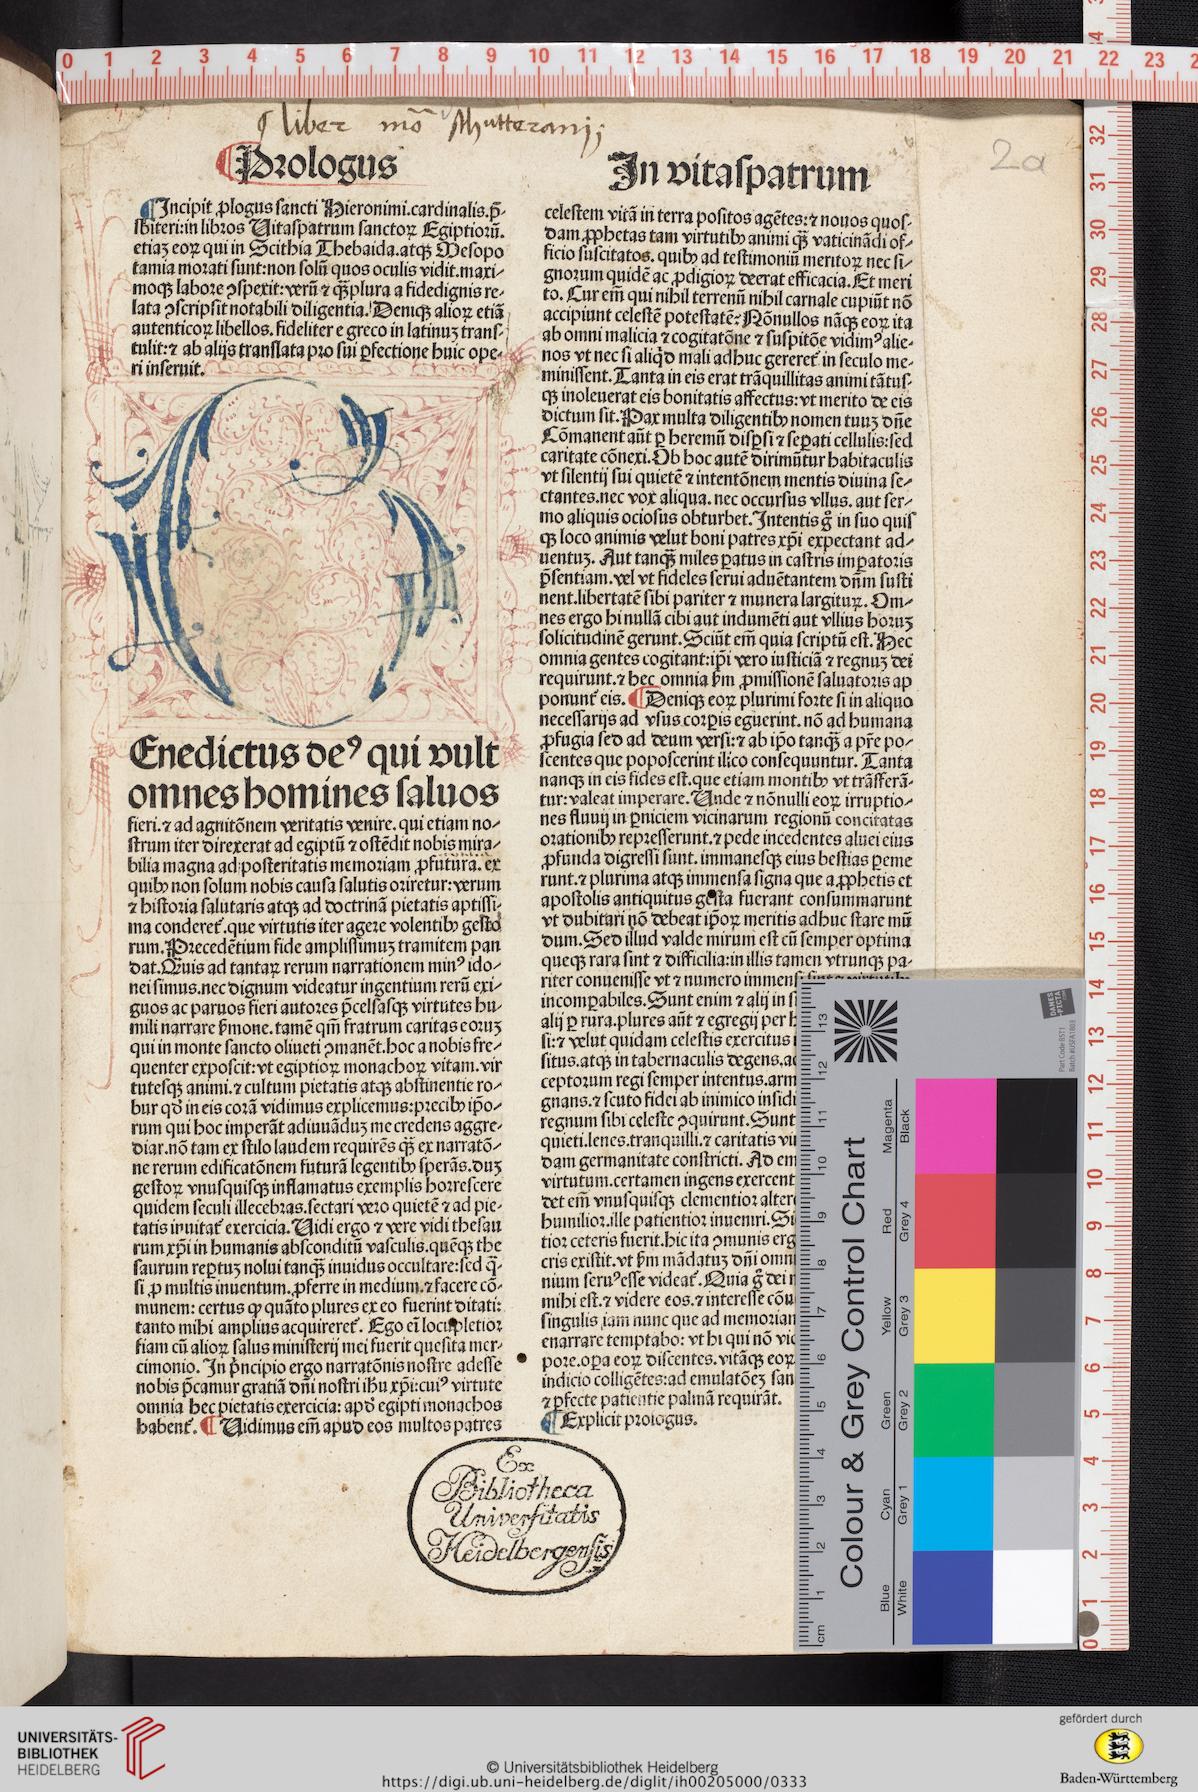 liber mō Schutteranj;
2a
Prologus
In vitaspatrum
¶Incipit ꝓlogus sancti Hieronimi.cardinalis.p̄-
sbiteri:in libros Uitaspatrum sanctoꝝ Egiptioꝝ.
etiaꝫ eoꝝ qui in Scithia Thebaida.atqꝫ Mesopo
tamia morati sunt:non solū quos oculis vidit.maxi-
moqꝫ labore ꝯspexit:verū ⁊ qꝫ̄ plura a fidedignis re-
lata ꝯscripsit notabili diligentia. Deniqꝫ alioꝝ etiā
autenticoꝝ libellos.fideliter e greco in latinuꝫ trans-
tulit:⁊ ab alijs translata pro sui ꝑfectione huic ope-
ri inseruit.
Enedictus deꝰ qui vult
omnes homines saluos
fieri.⁊ ad agnitōnem veritatis venire.qui etiam no-
strum iter direxerat ad egiptū ⁊ ostēdit nobis mira-
bilia magna ad posteritatis memoriam ꝓfutura.ex
quibꝰ non solum nobis causa salutis oriretur:verum
⁊ historia salutaris atqꝫ ad doctrinā pietatis aptissi-
ma conderet̄.que virtutis iter agere volentibꝰ gesto
rum.Precedētium fide amplissimuꝫ tramitem pan
dat.Quis ad tantaꝝ rerum narrationem minꝰ ido-
nei simus.nec dignum videatur ingentium rerū exi-
guos ac paruos fieri autores p̄celsasqꝫ virtutes hu-
mili narrare ẜmone.tamē qm̄ fratrum caritas eoruꝫ
qui in monte sancto oliueti ꝯmanēt.hoc a nobis fre-
quenter exposcit:vt egiptioꝝ monachoꝝ vitam.vir
tutesqꝫ animi.⁊ cultum pietatis atqꝫ abstinentie ro-
bur qđ in eis corā vidimus explicemus:precibꝰ ip̄o-
rum qui hoc imperāt adiuuāduꝫ me credens aggre-
diar.nō tam ex stilo laudem requirēs qꝫ̄ ex narratō-
ne rerum edificatōnem futurā legentibꝰ sperās.duꝫ
gestoꝝ vnusquisqꝫ inflamatus exemplis horrescere
quidem seculi illecebras.sectari vero quietē ⁊ ad pie-
tatis inuitat̄ exercicia.Uidi ergo ⁊ vere vidi thesau
rum xp̄i in humanis absconditū vasculis.quēqꝫ the
saurum reꝑtuꝫ nolui tanqꝫ̄ inuidus occultare:sed q̄-
si ꝓ multis inuentum.ꝓferre in medium.⁊ facere cō-
munem: certus ꝙ quāto plures ex eo fuerint ditati:
tanto mihi amplius acquireret̄. Ego eī locupletior
fiam cū alioꝝ salus ministerij mei fuerit quesita mer-
cimonio. In p̄ncipio ergo narratōnis nostre adesse
nobis p̄camur gratiā dn̄i nostri ihu xp̄i:cuiꝰ virtute
omnia hec pietatis exercicia: apđ egipti monachos
habent̄. ¶Uidimus em̄ apud eos multos patres
celestem vitā in terra positos agētes:⁊ nouos quos-
dam ꝓphetas tam virtutibꝰ animi qꝫ̄ vaticinādi of-
ficio suscitatos.quibꝰ ad testimoniū meritoꝝ nec si-
gnorum quidē ac ꝓdigioꝝ deerat efficacia.Et meri
to. Cur em̄ qui nihil terrenū nihil carnale cupiūt nō
accipiunt celestē potestatē: Nōnullos nāqꝫ eoꝝ ita
ab omni malicia ⁊ cogitatōne ⁊ suspitōe vidimꝰ alie-
nos vt nec si aliqđ mali adhuc gereret̄ in seculo me-
minissent.Tanta in eis erat trāquillitas animi tātus-
qꝫ inoleuerat eis bonitatis affectus:vt merito de eis
dictum sit.Pax multa diligentibꝰ nomen tuuꝫ dn̄e
Cōmanent aūt ꝑ heremū disꝑsi ⁊ seꝑati cellulis:sed
caritate cōnexi.Ob hoc autē dirimūtur habitaculis
vt silentij sui quietē ⁊ intentōnem mentis diuina se-
ctantes.nec vox aliqua. nec occursus vllus. aut ser-
mo aliquis ociosus obturbet.Intentis g̊ in suo quis
qꝫ loco animis velut boni patres xp̄i expectant ad-
uentuꝫ. Aut tanqꝫ̄ miles ꝑatus in castris imꝑatoris
p̄sentiam.vel vt fideles serui aduētantem dn̄m susti
nent.libertatē sibi pariter ⁊ munera largituꝝ. Om-
nes ergo hi nullā cibi aut indumēti aut vllius horuꝫ
solicitudinē gerunt.Sciūt em̄ quia scriptū est.Hec
omnia gentes cogitant:ip̄i vero iusticiā ⁊ regnuꝫ dei
requirunt.⁊ hec omnia ẜm ꝓmissionē saluatoris ap
ponunt̄ eis. ¶Deniqꝫ eoꝝ plurimi forte si in aliquo
necessarijs ad vsus corꝑis eguerint. nō ad humana
ꝓfugia sed ad deum versi:⁊ ab ip̄o tanqꝫ̄ a pr̄e po-
scentes que poposcerint ilico consequuntur. Tanta
nanqꝫ in eis fides est.que etiam montibꝰ vt trāsferā-
tur:valeat imperare. Unde ⁊ nōnulli eoꝝ irruptio-
nes fluuij in ꝑniciem vicinarum regionū concitatas
orationibꝰ represserunt.⁊ pede incedentes aluei eius
ꝓfunda digressi sunt. immanesqꝫ eius bestias ꝑeme
runt.⁊ plurima atqꝫ immensa signa que a ꝓphetis et
apostolis antiquitus gesta fuerant consummarunt
vt dubitari nō debeat ip̄oꝝ meritis adhuc stare mū
dum. Sed illud valde mirum est cū semper optima
queqꝫ rara sint ⁊ difficilia:in illis tamen vtrunqꝫ pa-
riter conuenisse vt ⁊ numero immensi sint ⁊ virtutibꝰ
incomꝑabiles.Sunt enim ⁊ alij in s
alij ꝑ rura.plures aūt ⁊ egregij per h
si:⁊ velut quidam celestis exercitus
situs.atqꝫ in tabernaculis degens.
ceptorum regi semper intentus.arm
gnans.⁊ scuto fidei ab inimico insidi
regnum sibi celeste ꝯquirunt.Sunt
quieti.lenes.tranquilli.⁊ caritatis vi
dam germanitate constricti. Ad em
virtutum.certamen ingens exercent
det em̄ vnusquisqꝫ clementior alter
humilior.ille patientior inueniri.Si
tior ceteris fuerit.hic ita ꝯmunis erg
cris existit.vt ẜm mādatuꝫ dn̄i omn
nium seruꝰ esse videat̄. Quia g̊ dei
mihi est.⁊ videre eos.⁊ interesse cōu
singulis iam nunc que ad memoriam
enarrare temptabo: vt hi qui nō vi
pore.oꝑa eoꝝ discentes.vitāqꝫ eoꝝ
indicio colligētes:ad emulatōeꝫ san
⁊ ꝑfecte patientie palmā requirāt.
¶Explicit prologus.
Ex
Bibliotheca
Universitatis
Heidelbergensis
Colour & Grey Control Chart
Blue Cyan Green Yellow Red Magenta
White Grey 1 Grey 2 Grey 3 Grey 4 Black
DANES
-PICTA
.COM
Part Code BST1
cm 1 2 3 4 5 6 7 8 9 10 11 12 13
0 1 2 3 4 5 6 7 8 9 10 11 12 13 14 15 16 17 18 19 20 21 22 23
32
31
30
29
28
27
26
25
24
23
22
21
20
19
18
17
16
15
14
13
12
11
10
9
8
7
6
5
4
3
2
1
0
UNIVERSITÄTS-
BIBLIOTHEK
HEIDELBERG
© Universitätsbibliothek Heidelberg
https://digi.ub.uni-heidelberg.de/diglit/ih00205000/0333
gefördert durch
Baden-Württemberg